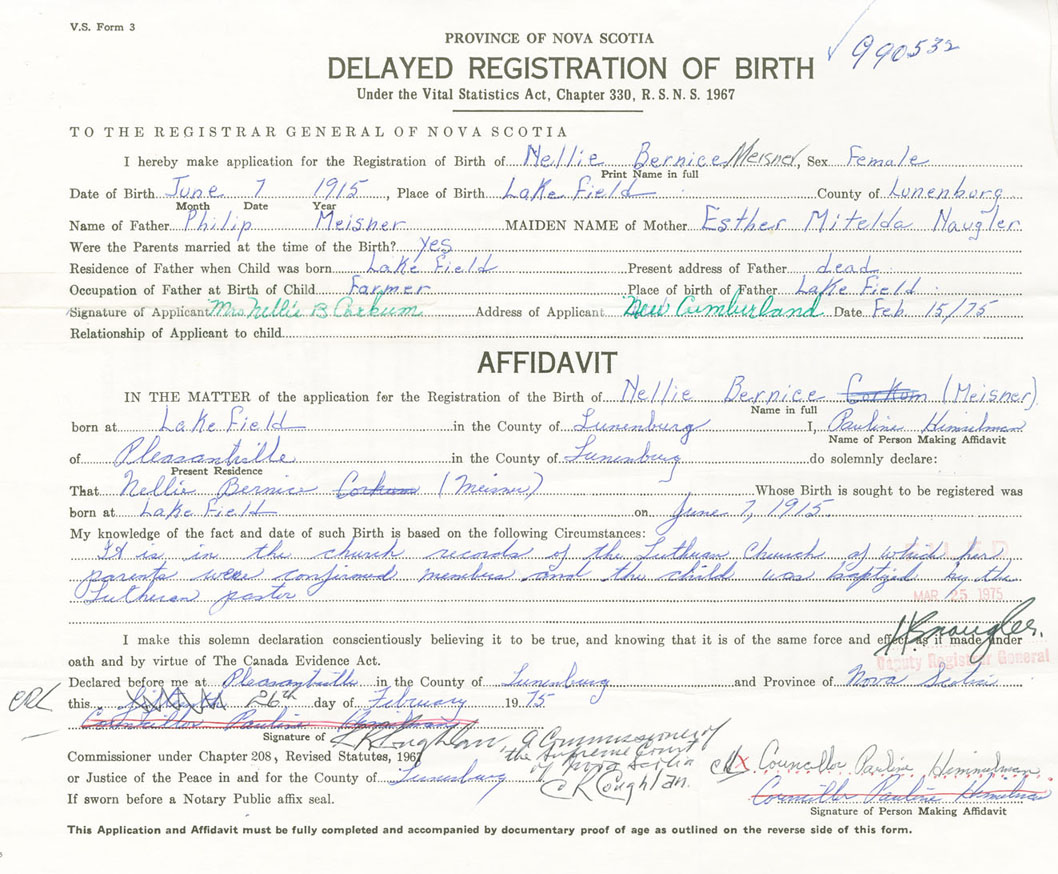 V.S. Form 3
990532
PROVINCE OF NOVA SCOTIA
DELAYED REGISTRATION OF BIRTH
Under the Vital Statistics Act, Chapter 330, R.S.N.S. 1967
TO THE REGISTRAR GENERAL OF NOVA SCOTIA
I hereby make application for the Registration of Birth of Nellie Bernice Meisner, Sex Female
Print Name in full
Date of Birth June 7 1915, Place of Birth Lake Field County of Lunenburg
Month Date Year
Name of Father Philip Meisner MAIDEN NAME of Mother Esther Mitelda Naugler
Were the Parents married at the time of the Birth? yes
Residence of Father when Child was born Lake Field Present address of Father dead
Occupation of Father at Birth of Child Farmer Place of birth of Father Lake Field
Signature of Applicant Mrs Nellie B Corkum Address of Applicant New Cumberland Date Feb 15/75
Relationship of Applicant to child
AFFIDAVIT
IN THE MATTER of the application for the Registration of the Birth of Nellie Bernice Corkum (Meisner)
Name in full
born at Lake Field in the County of Lunenburg I, Pauline Himmelman
Name of Person Making Affidavit
of Pleasantville in the County of Lunenburg do solemnly declare:
Present Residence
That Nellie Bernice Corkum (Meisner) Whose Birth is sought to be registered was
born at Lake Field on June 7, 1915.
My knowledge of the fact and date of such Birth is based on the following Circumstances:
It is in the church records of the Lutheran Church of which her
parents were confirmed members and the child was baptized by the
Lutheran pastor
MAR 25 1975
I make this solemn declaration conscientiously believing it to be true, and knowing that it is of the same force and effect as if made under
oath and by virtue of The Canada Evidence Act.
Deputy Registrar General
Declared before me at Pleasantville in the County of Lunenburg and Province of Nova Scotia
this 26th day of February 1975
Councillor Pauline Himmelman
Signature of
a Commissioner of
the Supreme Court
of Nova Scotia
Commissioner under Chapter 208, Revised Statutes, 1967
Councillor Pauline Himmelman
or Justice of the Peace in and for the County of Lunenburg
Coughlan.
Councillor Pauline Himmelman
Signature of Person Making Affidavit
If sworn before a Notary Public affix seal.
This Application and Affidavit must be fully completed and accompanied by documentary proof of age as outlined on the reverse side of this form.